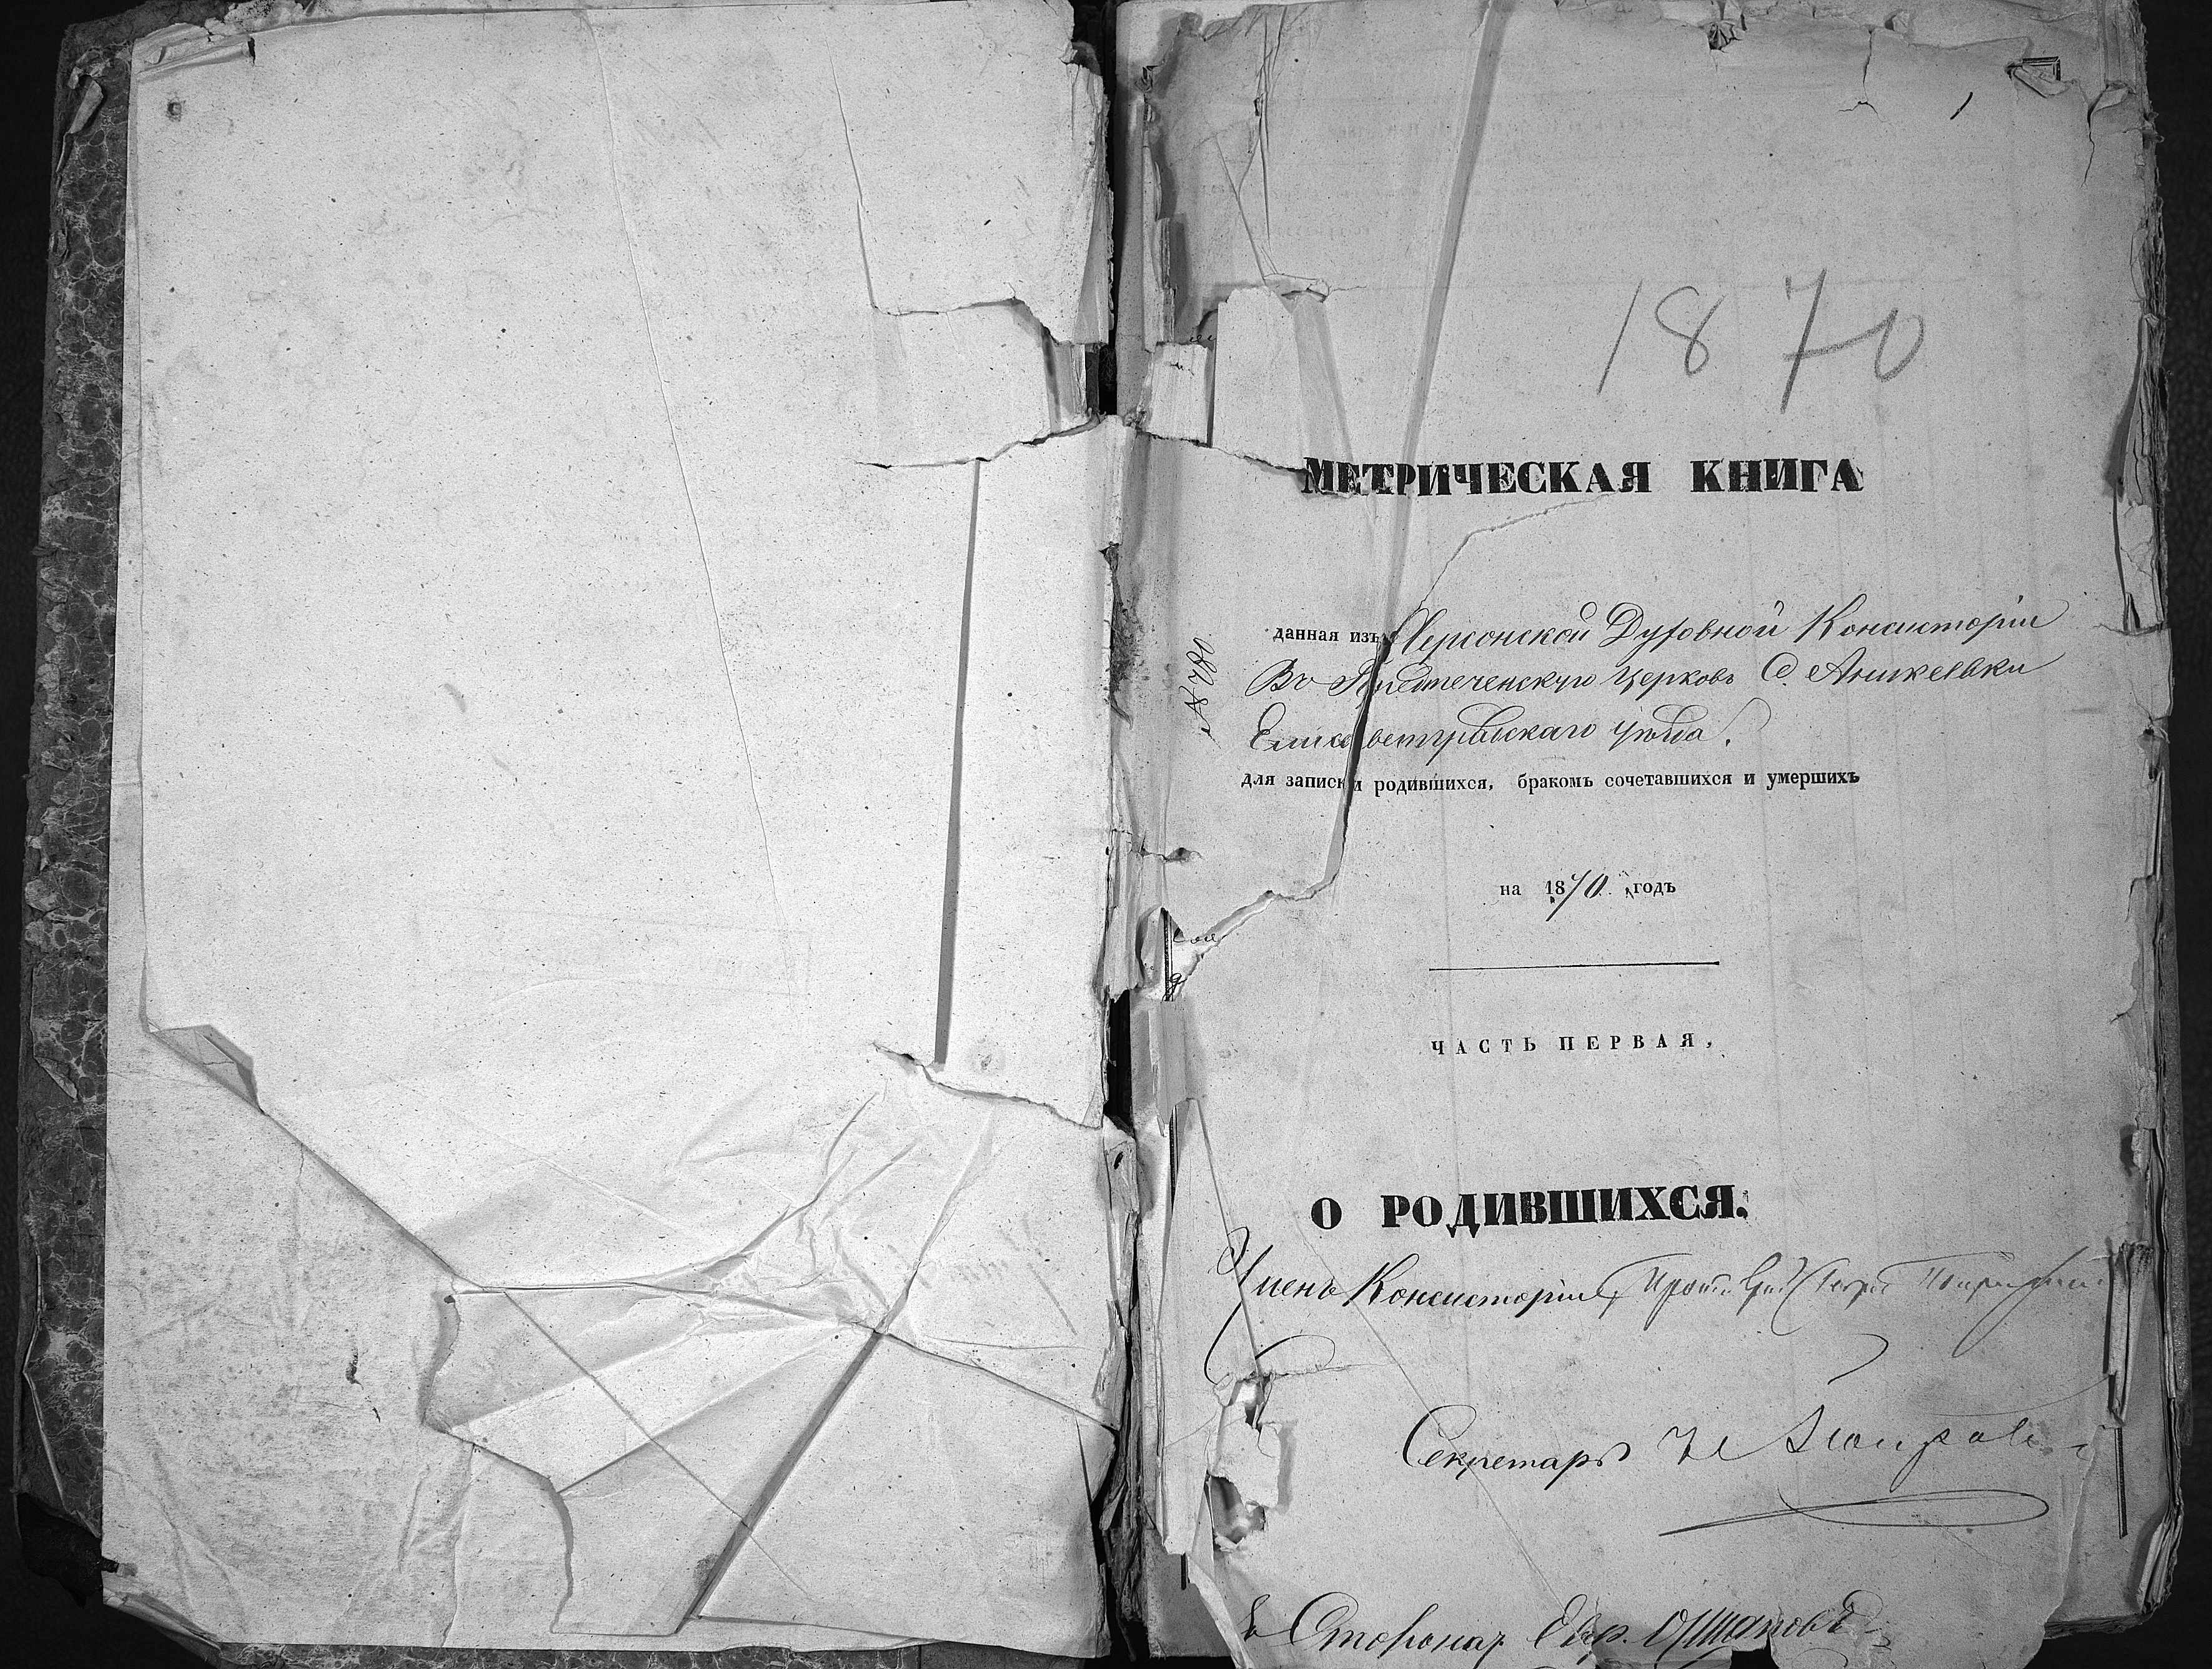 1
1870
МЕТРИЧЕСКАЯ КНИГА
данная изъ Херсонской Духовной Консисторіи
Въ Предтеченскую Церковь С. Аникеевки
Елисаветградскаго уѣзда.
№ 780
для записки родившихся, бракомъ сочетавшихся и умершихъ
на 1870 годъ
ЧАСТЬ ПЕРВАЯ,
О РОДИВШИХСЯ.
Членъ Консисторіи,
Секретарь